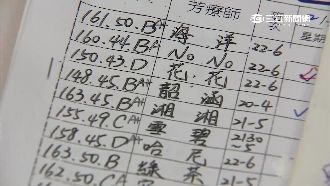 三立新聞網
芳療師
星期
161.50.B A+ 海洋 22-6
160.44.B A NoNo 22-6
150.43.D 花花 22-6
148.45.B A+ 韶涵 20-4
163.45.B A+ 湘湘 21-5
155.49.C A+ 雲碧 2130~5
158.45.D A+ 哈尼 22-6
163.50.B 綠茶 22-6
162.50.C A